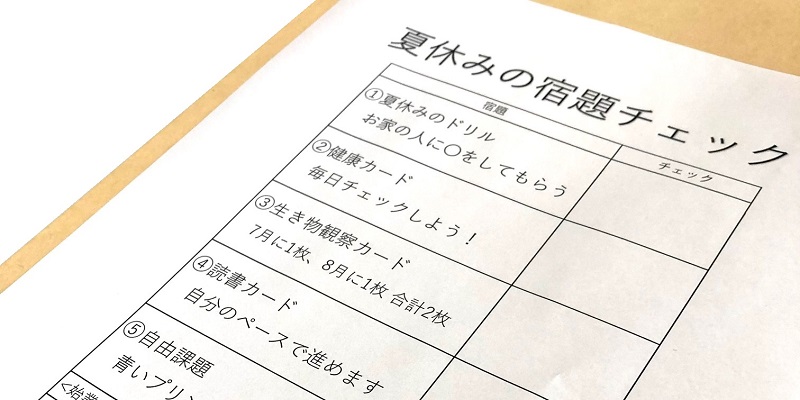 夏休みの宿題チェック
宿題
チェック
①夏休みのドリル
お家の人に〇をしてもらう
②健康カード
毎日チェックしよう！
③生き物観察カード
7月に1枚、8月に1枚 合計2枚
④読書カード
自分のペースで進めます
⑤自由課題
青いプリン
<始業